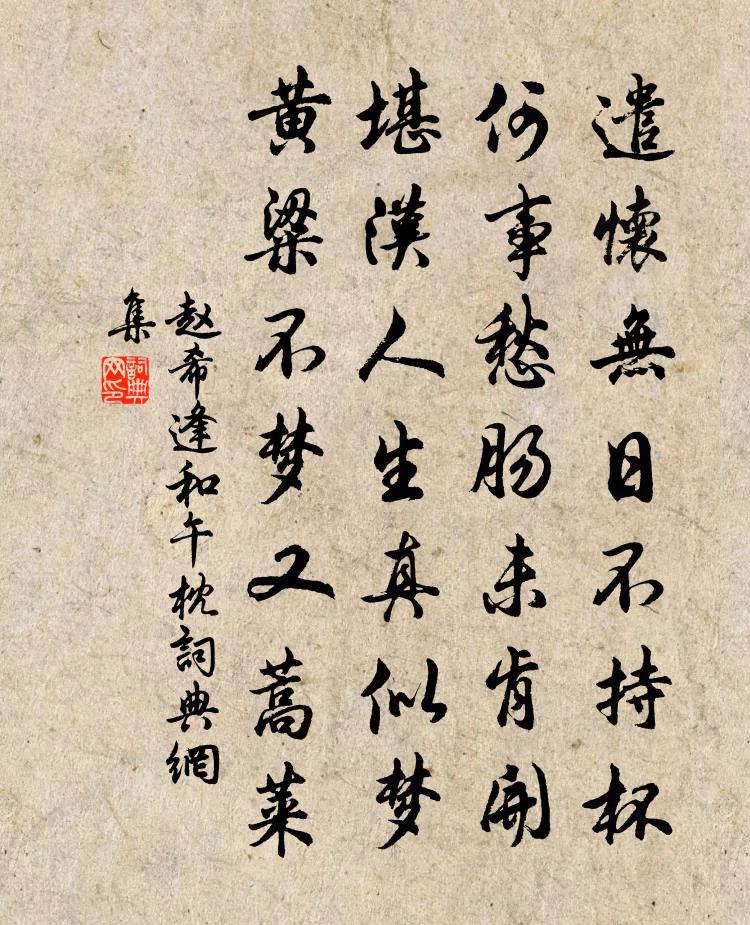 遣懷無日不持杯
何事愁腸未肯開
堪漢人生真似梦
黃粱不梦又蒿莱
赵希逢和午枕詞典網
集
詞典网印